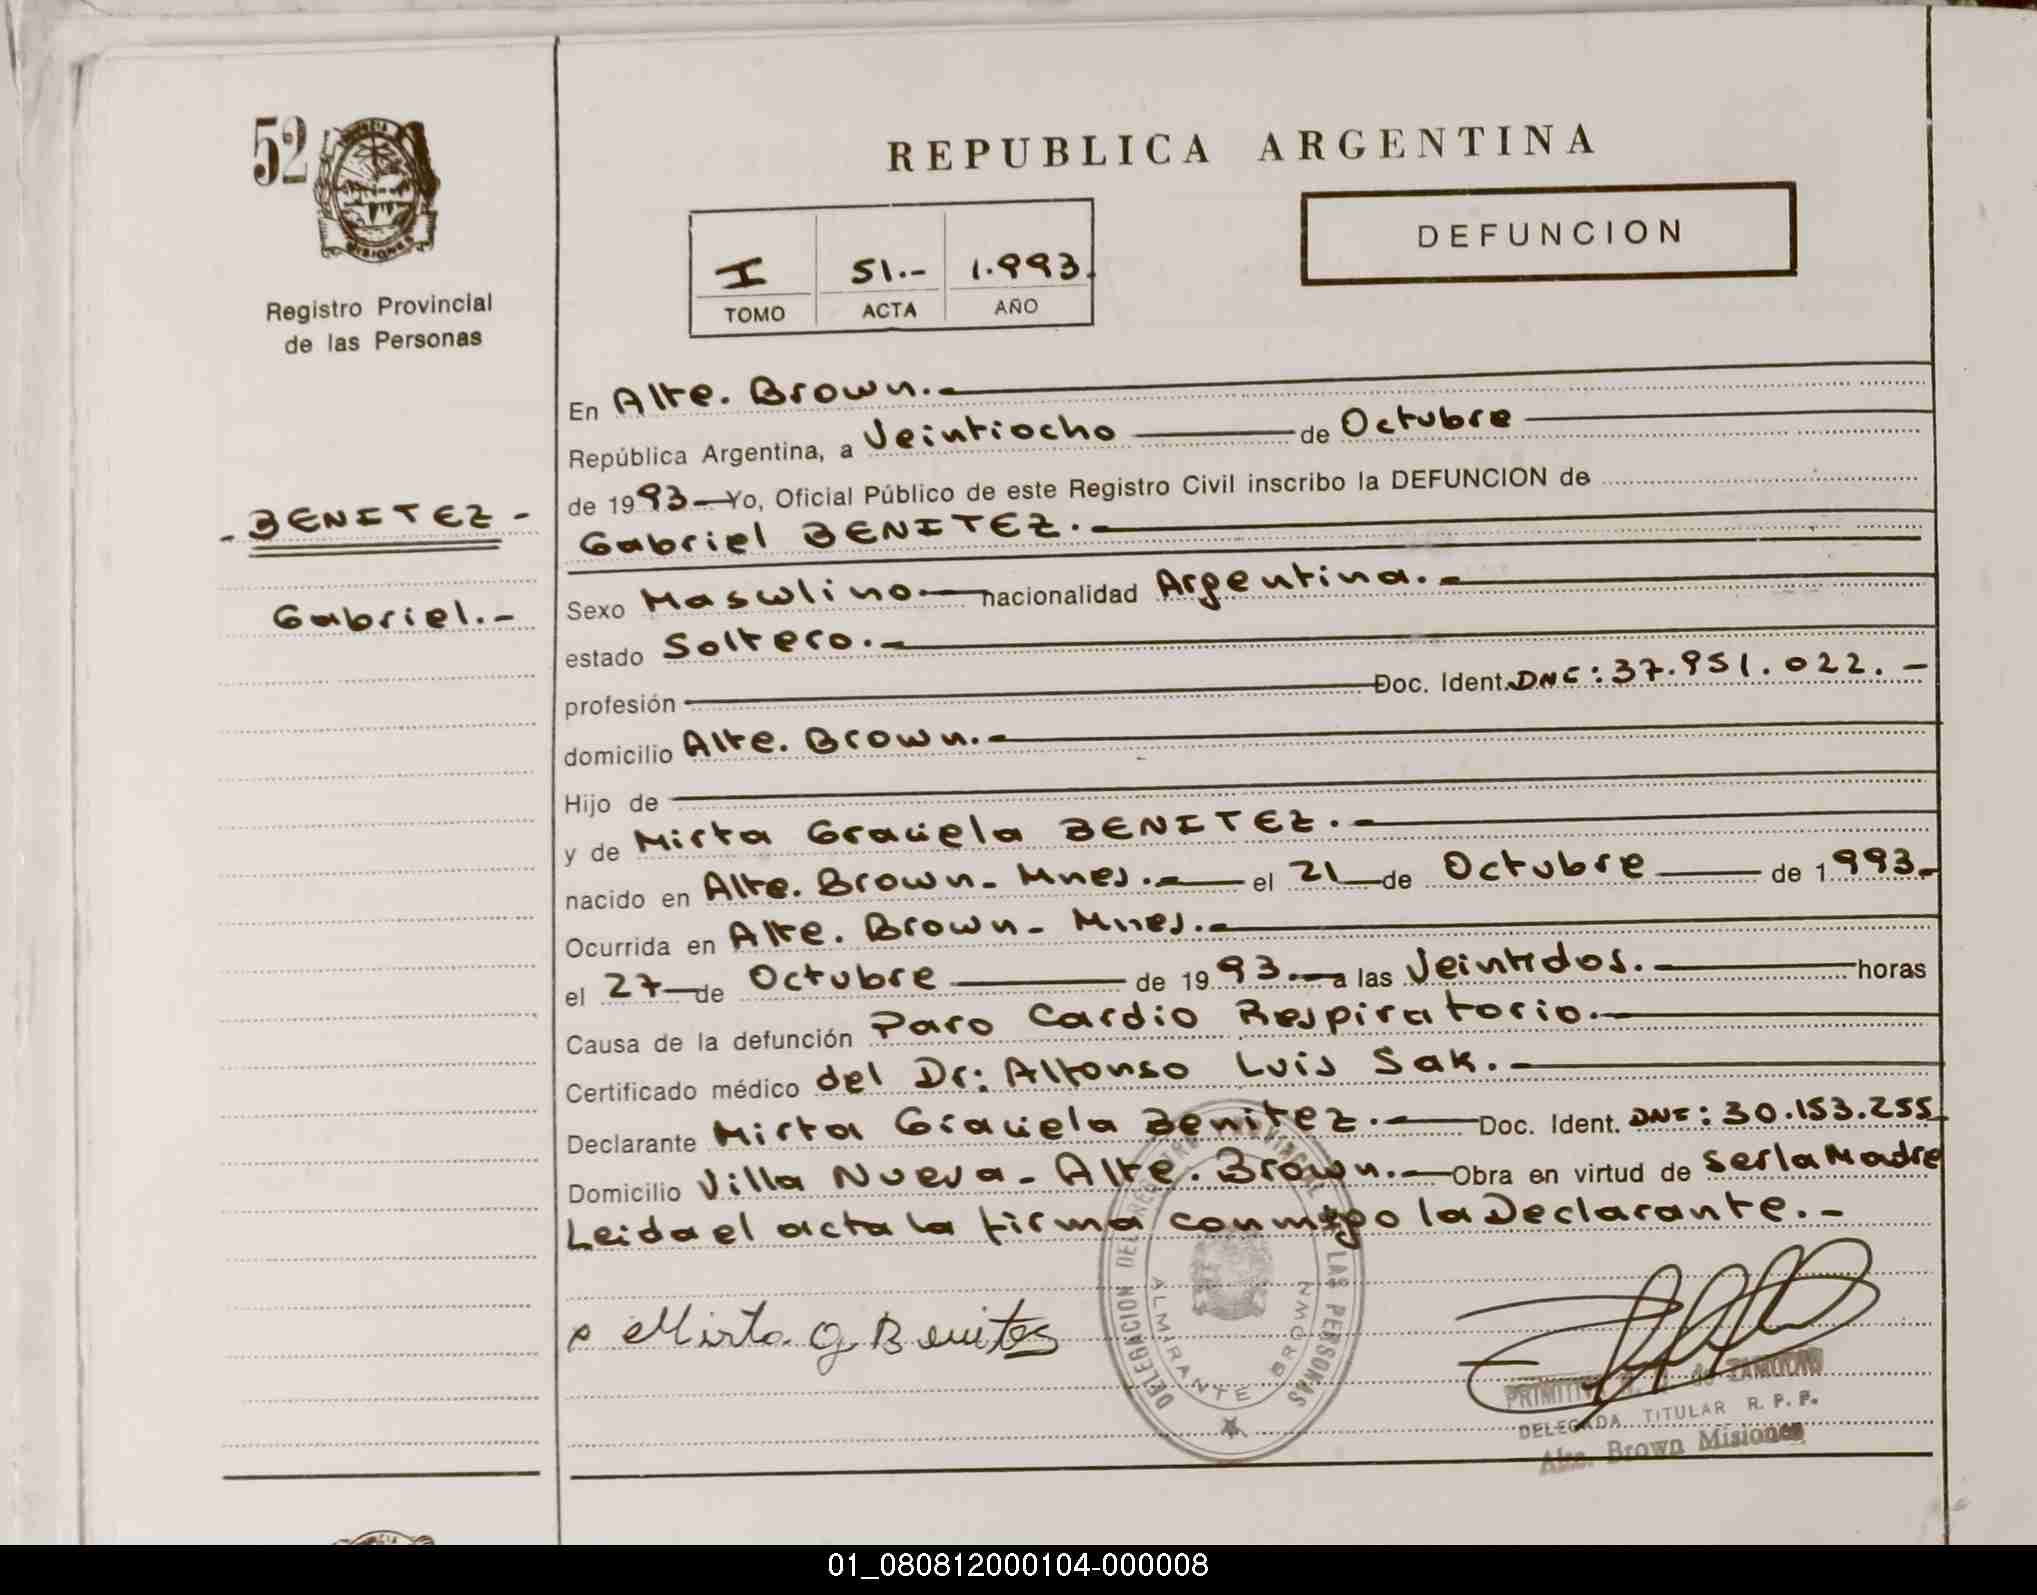 52
PROVINCIA
MISIONES
Registro Provincial
de las Personas
- BENITEZ -
Gabriel.-
REPUBLICA ARGENTINA
DEFUNCION
I 51.- 1.993.
TOMO ACTA AÑO
En Alte. Brown.-
República Argentina, a Veintiocho de Octubre
de 1993 Yo, Oficial Público de este Registro Civil inscribo la DEFUNCION de
Gabriel BENITEZ.-
Sexo Masculino nacionalidad Argentina.-
estado Soltero.-
profesión Doc. Ident. DNI: 37.951.022.-
domicilio Alte. Brown.-
Hijo de
y de Mirta Graciela BENITEZ.-
nacido en Alte. Brown- Mnes.- el 21 de Octubre de 1993.-
Ocurrida en Alte. Brown- Mnes.-
el 27 de Octubre de 1993.- a las Veintidos.- horas
Causa de la defunción Paro Cardio Respiratorio.-
Certificado médico del Dr: Alfonso Luis Sak.-
Declarante Mirta Graciela Benitez.- Doc. Ident. DNI: 30.153.255
Domicilio Villa Nueva- Alte. Brown.- Obra en virtud de ser la Madre
Leida el acta la firma conmigo la Declarante.-
Mirta G Benites
DELEGACION DEL REGISTRO PROVINCIAL DE LAS PERSONAS
ALMIRANTE BROWN
DELEGADA TITULAR R. P. P.
Alte. Brown Misiones
01_080812000104-000008